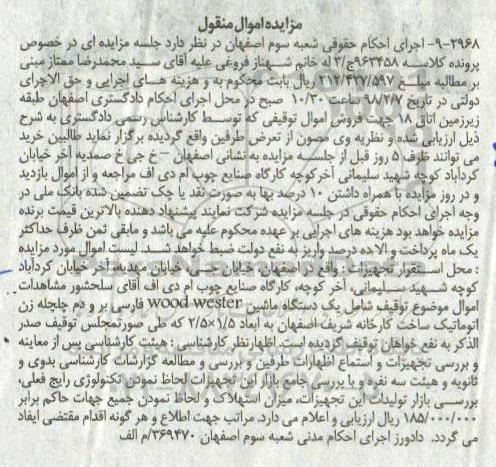 مزایده اموال منقول
۹-۲۹۶۸- اجرای احکام حقوقی شعبه سوم اصفهان در نظر دارد جلسه مزایده ای در خصوص
پرونده کلاسه ۹۶۳۴۵۸ج/۳ له خانم شهناز فروغی علیه آقای سید محمدرضا ممتاز مبنی
بر مطالبه مبلغ ۳۱۲/۴۲۷/۵۹۷ ریال بابت محکوم به و هزینه های اجرایی و حق الاجرای
دولتی در تاریخ ۹۸/۲/۷ ساعت ۱۰/۳۰ صبح در محل اجرای احکام دادگستری اصفهان طبقه
زیرزمین اتاق ۱۸ جهت فروش اموال توقیفی که توسط کارشناس رسمی دادگستری به شرح
ذیل ارزیابی شده و نظریه وی مصون از تعرض طرفین واقع گردیده برگزار نماید طالبین خرید
می توانند ظرف ۵ روز قبل از جلسه مزایده به نشانی اصفهان – خ جی خ صمدیه آخر خیابان
کردآباد کوچه شهید سلیمانی آخر کوچه کارگاه صنایع چوب ام دی اف مراجعه و از اموال بازدید
و در روز مزایده با همراه داشتن ۱۰ درصد بها به صورت نقد یا چک تضمین شده بانک ملی در
وجه اجرای احکام حقوقی در جلسه مزایده شرکت نمایند پیشنهاد دهنده بالاترین قیمت برنده
مزایده خواهد بود هزینه های اجرایی بر عهده محکوم علیه می باشد و مابقی ثمن ظرف حداکثر
یک ماه پرداخت و الا ده درصد واریز به نفع دولت ضبط خواهد شد. لیست اموال مورد مزایده
: محل استقرار تجهیزات : واقع در اصفهان، خیابان جی، خیابان مهدیه، آخر خیابان کردآباد
کوچه شهید سلیمانی، آخر کوچه، کارگاه صنایع چوب ام دی اف آقای سلحشور مشاهدات
اموال موضوع توقیف شامل یک دستگاه ماشین wood wester فارسی بر و دم چلچله زن
اتوماتیک ساخت کارخانه شریف اصفهان به ابعاد ۱/۵×۲/۵ که طی صورتمجلس توقیف صدر
الذکر به نفع خواهان توقیف گردیده است. اظهارنظر کارشناسی : هیئت کارشناسی پس از معاینه
و بررسی تجهیزات و استماع اظهارات طرفین و بررسی و مطالعه گزارشات کارشناسی بدوی و
ثانویه و هیئت سه نفره و با بررسی جامع بازار این تجهیزات لحاظ نمودن تکنولوژی رایج فعلی،
بررسی بازار تولیدات این تجهیزات، میزان استهلاک و لحاظ نمودن جمیع جهات حاکم برابر
۱۸۵/۰۰۰/۰۰۰ ریال ارزیابی و اعلام می دارد. مراتب جهت اطلاع و هر گونه اقدام مقتضی ایفاد
می گردد. دادورز اجرای احکام مدنی شعبه سوم اصفهان ۳۶۹۴۷۰/م الف